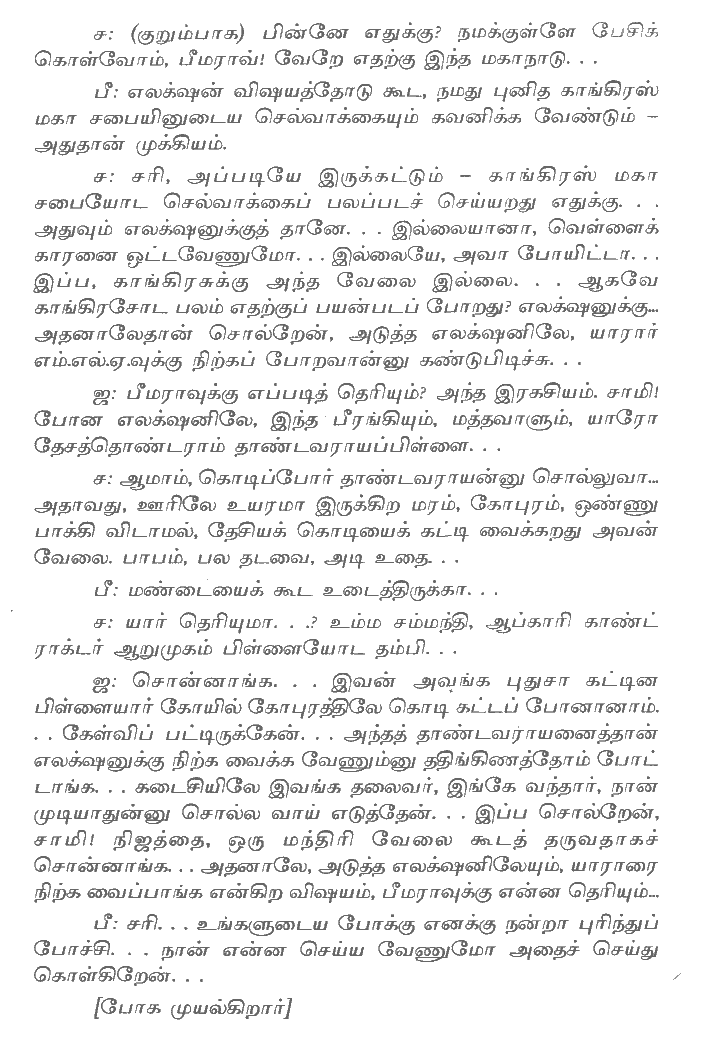 ச: (குறும்பாக) பின்னே எதுக்கு? நமக்குள்ளே பேசிக்
கொள்வோம், பீமராவ்! வேறே எதற்கு இந்த மகாநாடு. . .
பீ: எலக்ஷன் விஷயத்தோடு கூட, நமது புனித காங்கிரஸ்
மகா சபையினுடைய செல்வாக்கையும் கவனிக்க வேண்டும் –
அதுதான் முக்கியம்.
ச: சரி, அப்படியே இருக்கட்டும் – காங்கிரஸ் மகா
சபையோட செல்வாக்கைப் பலப்படச் செய்யறது எதுக்கு. . .
அதுவும் எலக்ஷனுக்குத் தானே. . . இல்லையானா, வெள்ளைக்
காரனை ஒட்டவேணுமோ. . . இல்லையே, அவா போயிட்டா. . .
இப்ப, காங்கிரசுக்கு அந்த வேலை இல்லை. . . ஆகவே
காங்கிரசோட பலம் எதற்குப் பயன்படப் போறது? எலக்ஷனுக்கு...
அதனாலேதான் சொல்றேன், அடுத்த எலக்ஷனிலே, யாரார்
எம்.எல்.ஏ.வுக்கு நிற்கப் போறவான்னு கண்டுபிடிச்சு. . .
ஐ: பீமராவுக்கு எப்படித் தெரியும்? அந்த இரகசியம். சாமி!
போன எலக்ஷனிலே, இந்த பீரங்கியும், மத்தவாளும், யாரோ
தேசத்தொண்டராம் தாண்டவராயப்பிள்ளை. . .
ச: ஆமாம், கொடிப்போர் தாண்டவராயன்னு சொல்லுவா...
அதாவது, ஊரிலே உயரமா இருக்கிற மரம், கோபுரம், ஒண்ணு
பாக்கி விடாமல், தேசியக் கொடியைக் கட்டி வைக்கறது அவன்
வேலை. பாபம், பல தடவை, அடி உதை. . .
பீ: மண்டையைக் கூட உடைத்திருக்கா. . .
ச: யார் தெரியுமா. . .? உம்ம சம்மந்தி, ஆப்காரி காண்ட்
ராக்டர் ஆறுமுகம் பிள்ளையோட தம்பி. . .
ஐ: சொன்னாங்க. . . இவன் அவங்க புதுசா கட்டின
பிள்ளையார் கோயில் கோபுரத்திலே கொடி கட்டப் போனானாம்.
. . கேள்விப் பட்டிருக்கேன். . . அந்தத் தாண்டவராயனைத்தான்
எலக்ஷனுக்கு நிற்க வைக்க வேணும்னு ததிங்கிணத்தோம் போட்
டாங்க. . . கடைசியிலே இவங்க தலைவர், இங்கே வந்தார், நான்
முடியாதுன்னு சொல்ல வாய் எடுத்தேன். . . இப்ப சொல்றேன்,
சாமி! நிஜத்தை, ஒரு மந்திரி வேலை கூடத் தருவதாகச்
சொன்னாங்க. . . அதனாலே, அடுத்த எலக்ஷனிலேயும், யாராரை
நிற்க வைப்பாங்க என்கிற விஷயம், பீமராவுக்கு என்ன தெரியும்...
பீ: சரி. . . உங்களுடைய போக்கு எனக்கு நன்றா புரிந்துப்
போச்சி. . . நான் என்ன செய்ய வேணுமோ அதைச் செய்து
கொள்கிறேன். . .
[போக முயல்கிறார்]